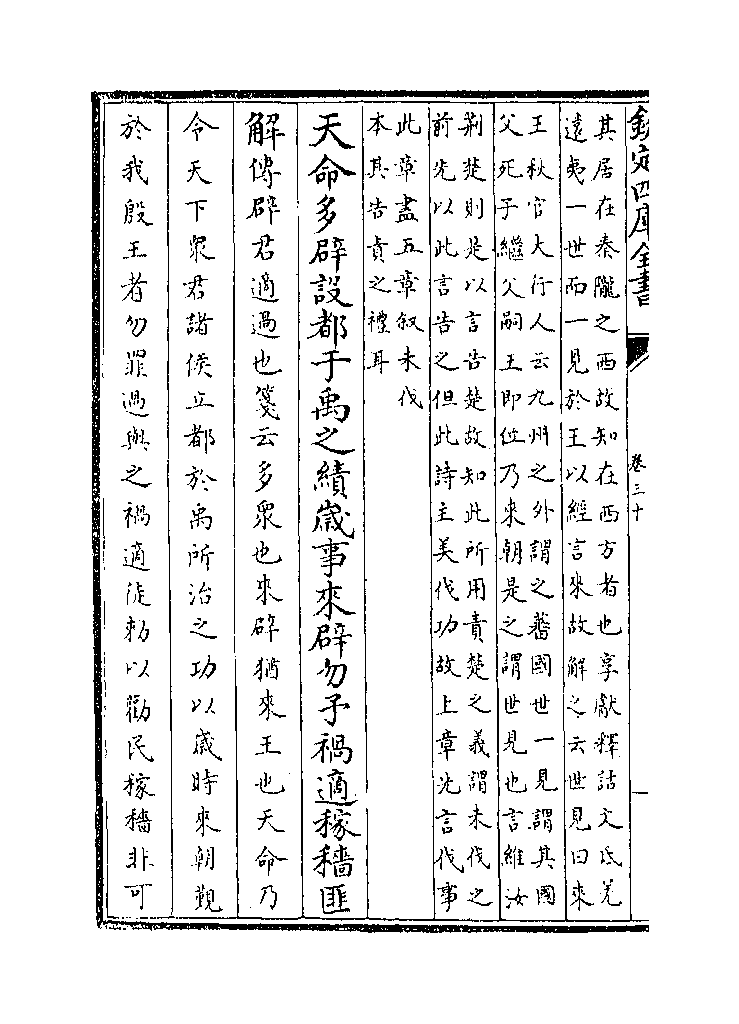 欽定四庫全書
卷三十
其居在秦隴之西故知在西方者也享獻釋詁文氐羌
遠夷一世而一見於王以經言來故解之云世見曰來
王秋官大行人云九州之外謂之蕃國世一見謂其國
父死子繼父嗣王即位乃來朝是之謂世見也言維汝
荆楚則是以言告楚故知此所用責楚之義謂未伐之
前先以此言告之但此詩主美伐功故上章先言伐事
此章盡五章叙未伐
本其告責之禮耳
天命多辟設都于禹之績歲事來辟勿予禍適稼穡匪
解傳辟君適過也箋云多衆也來辟猶來王也天命乃
令天下衆君諸侯立都於禹所治之功以歲時來朝覲
於我殷王者勿罪過與之禍適徒勑以勸民稼穡非可